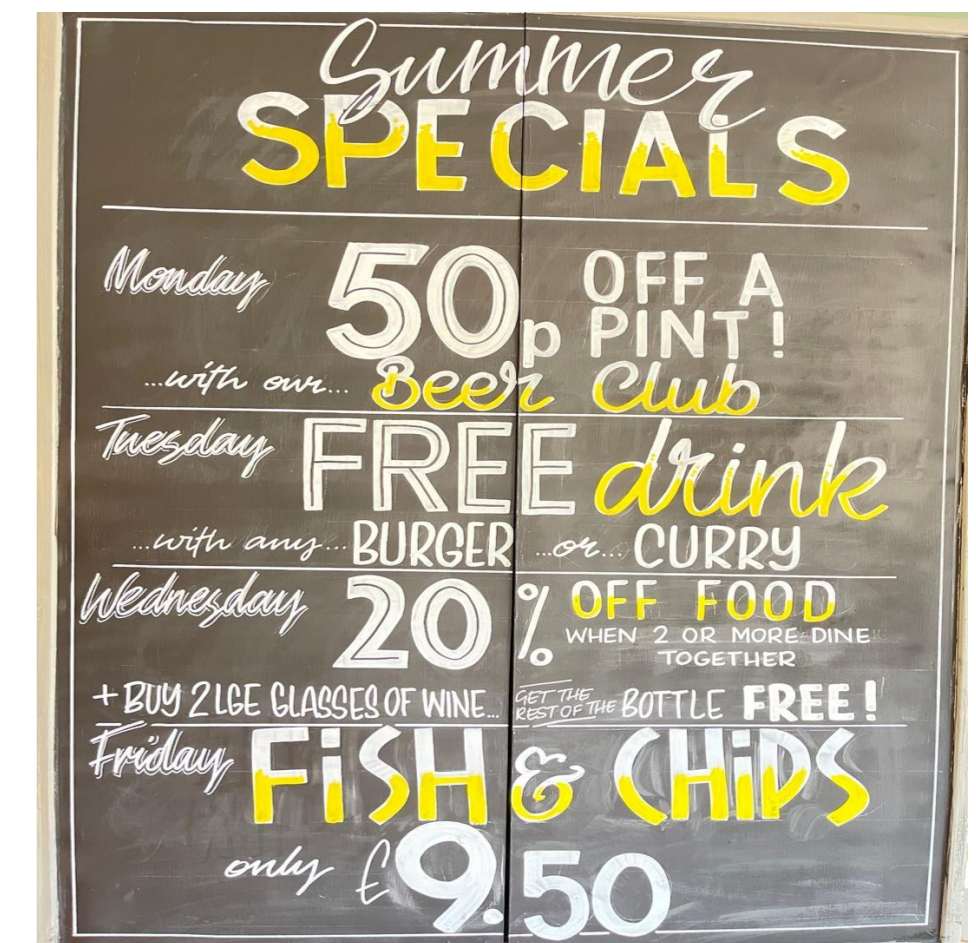 Summer
SPECIALS
Monday 50p OFF A PINT!
...with our... Beer Club
Tuesday FREE drink
...with any... BURGER ...or... CURRY
Wednesday 20% OFF FOOD
WHEN 2 OR MORE DINE
TOGETHER
+ BUY 2 LGE GLASSES OF WINE... GET THE REST OF THE BOTTLE FREE!
Friday FISH & CHIPS
only £9.50